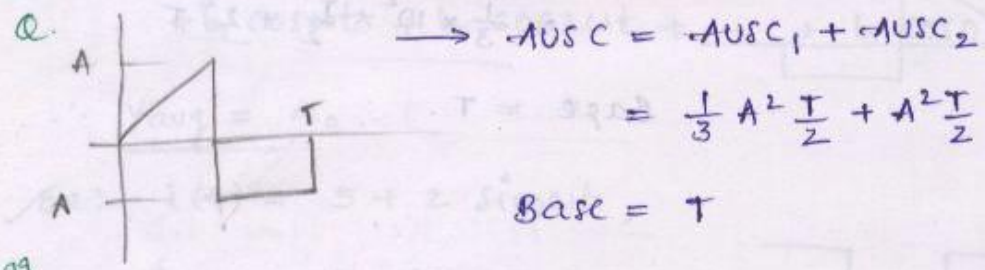 Q.
A
T
A
→ AUSC = AUSC₁ + AUSC₂
= 1/3 A² T/2 + A² T/2
Base = T